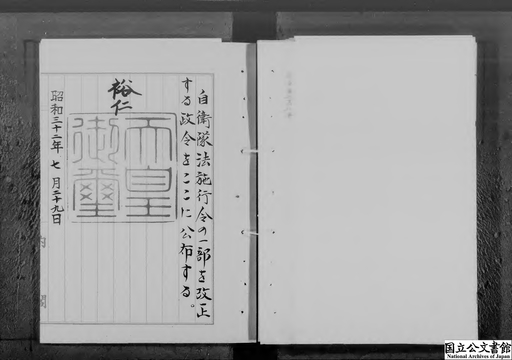 自衛隊法施行令の一部を改正
する政令をここに公布する。
裕仁
天皇
御璽
昭和三十二年七月二十九日
内閣
国立公文書館
National Archives of Japan